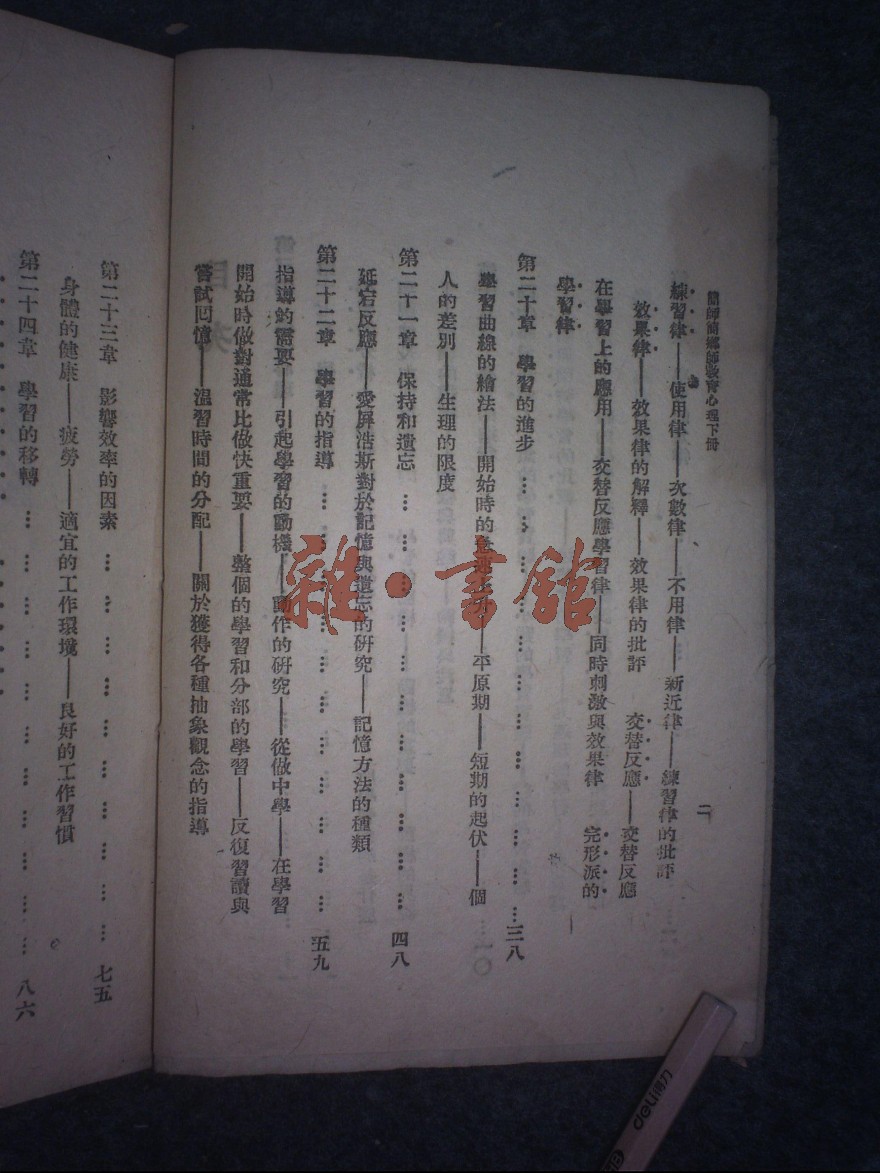 簡師簡鄉師教育心理下冊 二
練習律——使用律——次數律——不用律——新近律——練習律的批評
效果律——效果律的解釋——效果律的批評 交替反應——交替反應
在學習上的應用——交替反應學習律——同時刺激與效果律 完形派的
學習律
第二十章 學習的進步 … … … … … … … … … … 三八
學習曲線的繪法——開始時的急速上升——平原期——短期的起伏——個
人的差別——生理的限度
第二十一章 保持和遺忘 … … … … … … … … … … 四八
延宕反應——愛屏浩斯對於記憶與遺忘的研究——記憶方法的種類
第二十二章 學習的指導 … … … … … … … … … … 五九
指導的需要——引起學習的動機——動作的研究——從做中學——在學習
開始時做對通常比做快重要——整個的學習和分部的學習——反復習讀與
嘗試回憶——溫習時間的分配——關於獲得各種抽象觀念的指導
第二十三章 影響效率的因素 … … … … … … … … … 七五
身體的健康——疲勞——適宜的工作環境——良好的工作習慣
第二十四章 學習的移轉 … … … … … … … … … … 八六
雜·書館
deli得力